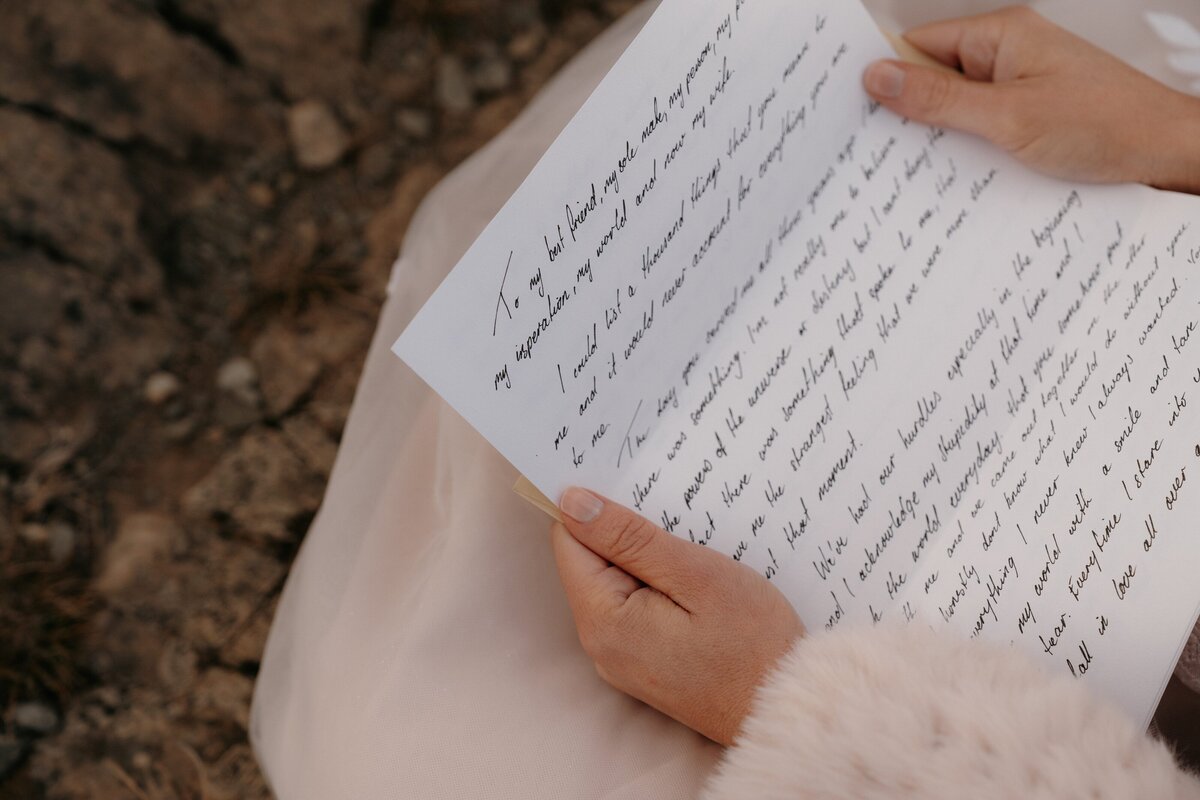 To my best friend, my sole mate, my person, my
my insperation, my world and now my wife.
I could list a thousand things that you mean to
me and it would never account for everything you are
to me.
The day you served me all those years ago I
there was something. I'm not really one to believe
the powers of the universe or destiny but I cant deny the
but there was something that spoke to me, that
me the strangest feeling that we were more than
that moment.
We've had our hurdles especially in the beginning
and I acknowledge my stupidity at that time and I
the world everyday that you somehow put
me and we came out together on the other
honestly dont know what I would do without you
everything I never knew I always wanted.
my world with a smile and
tear. Everytime I stare into
fall in love all over